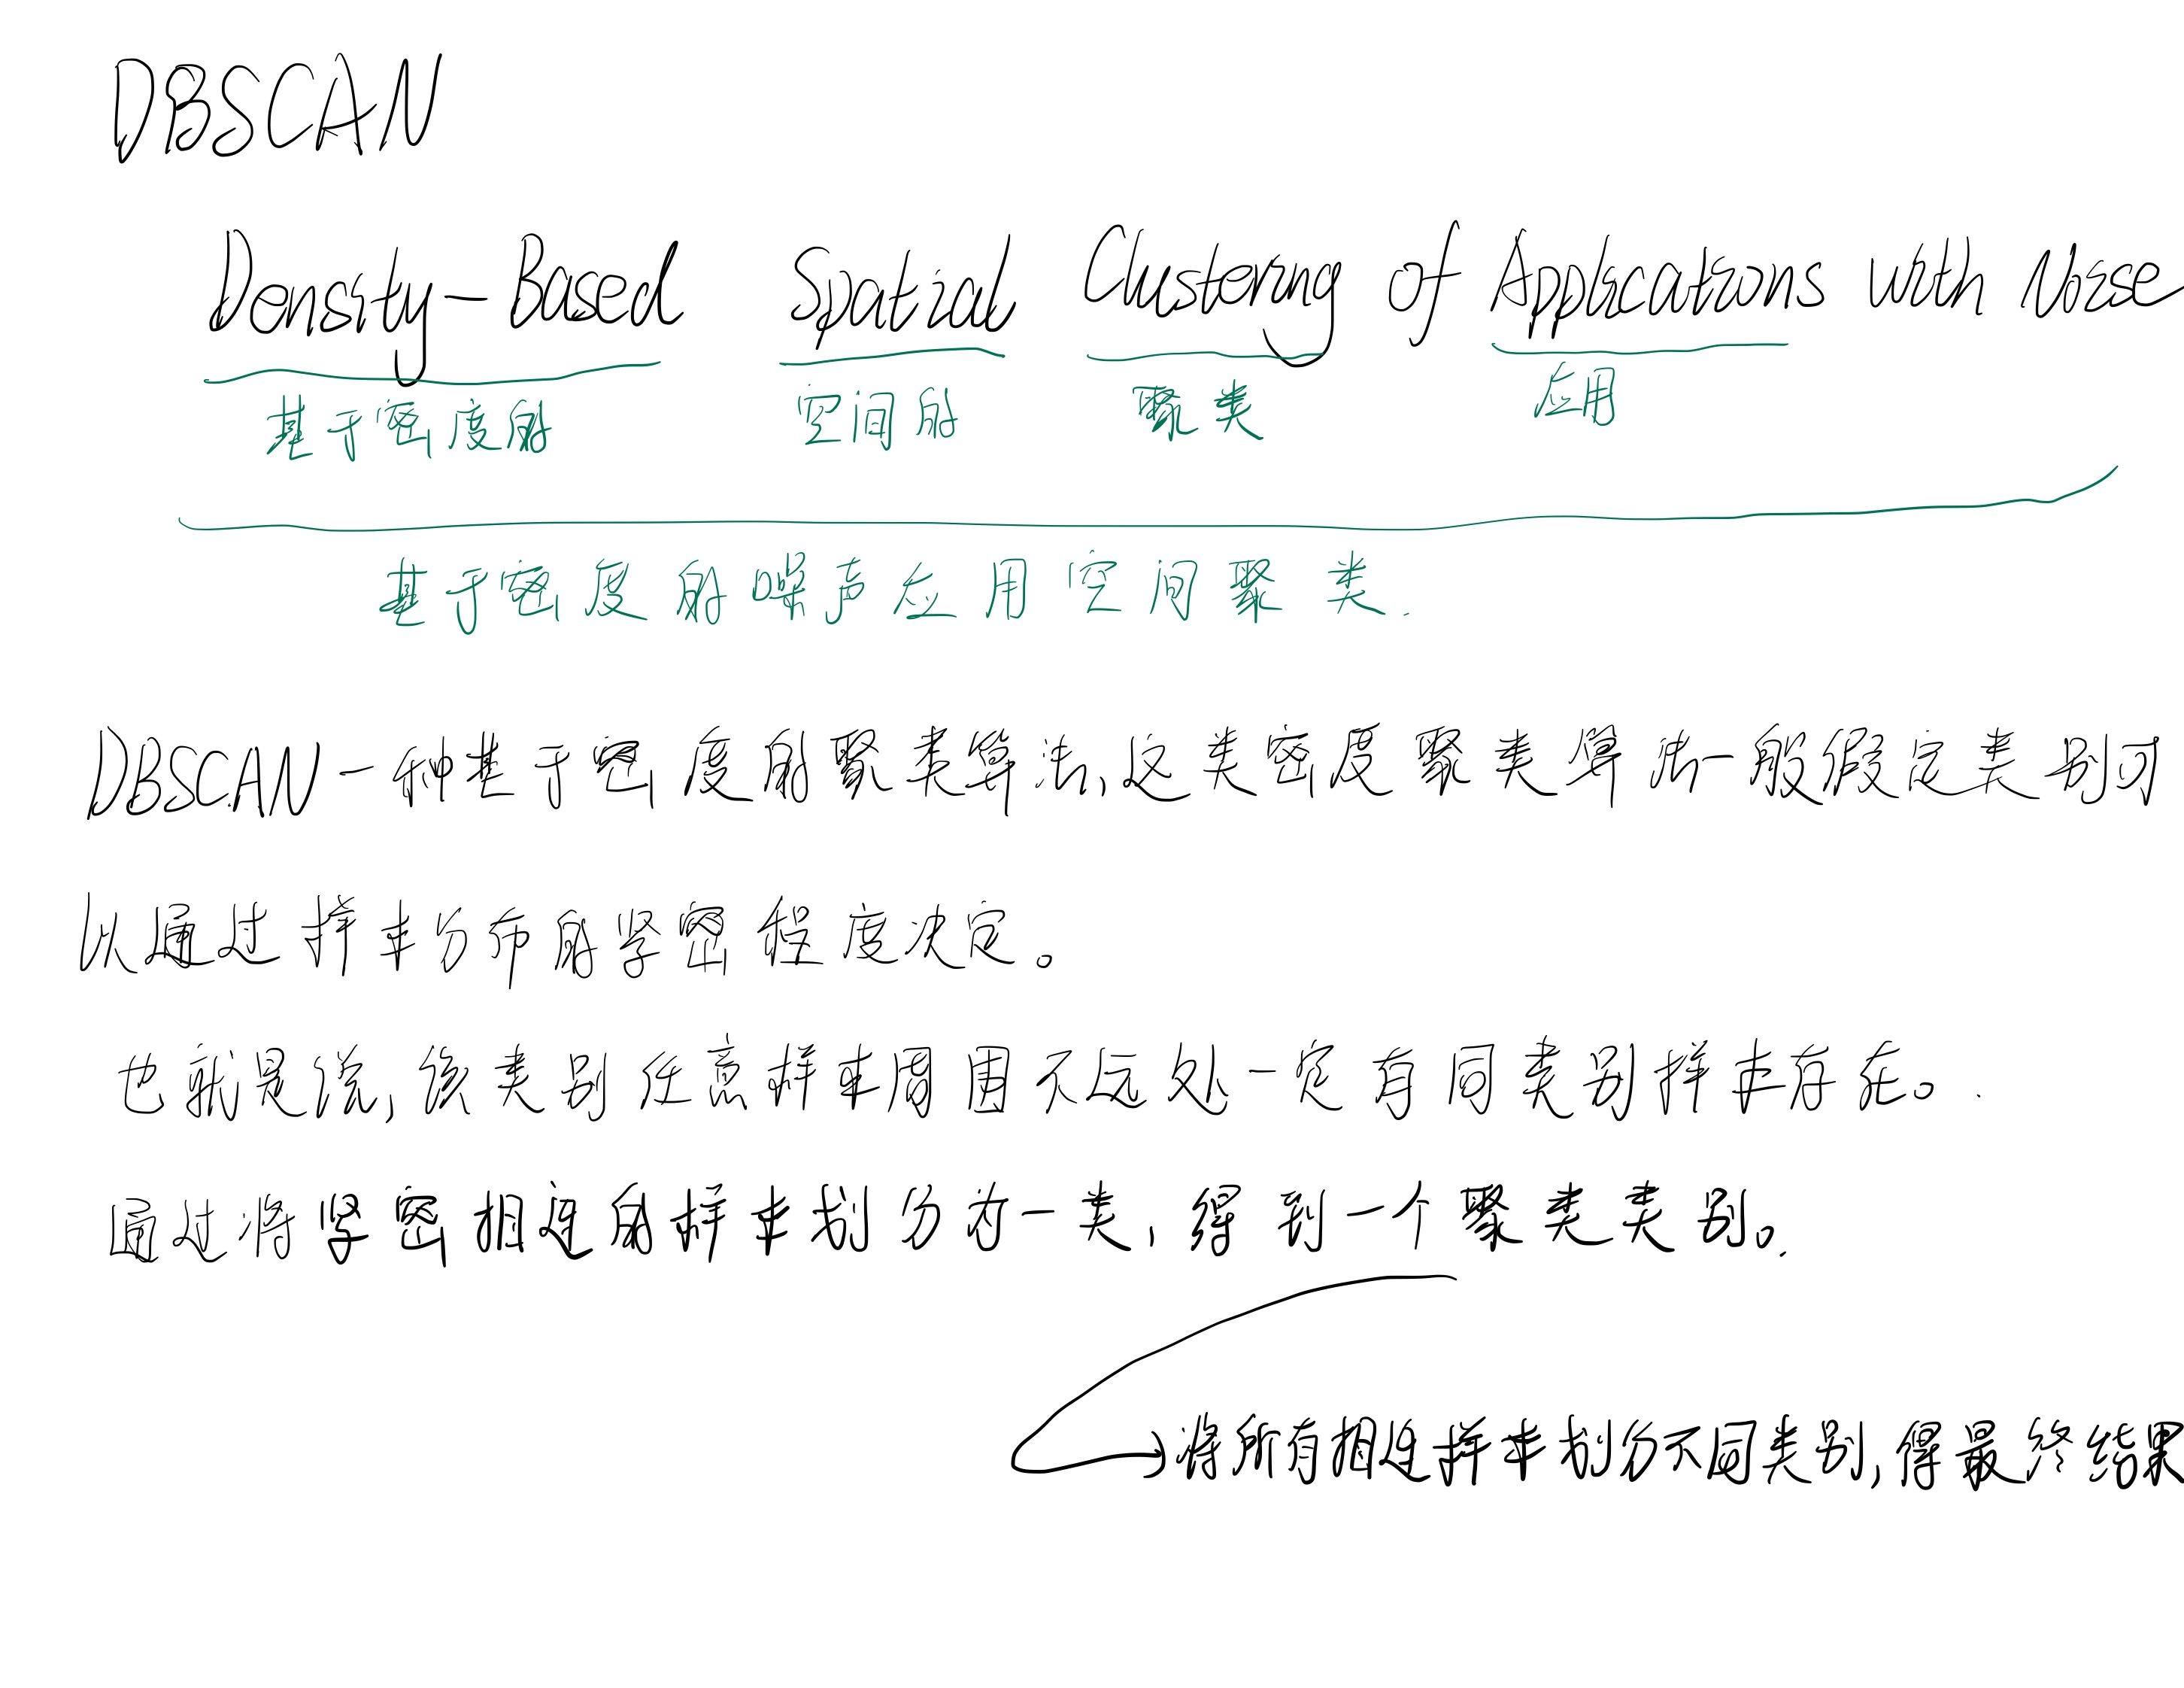 DBSCAN
Density-Based Spatial Clustering of Applications with Noise
基于密度的 空间的 聚类 应用
基于密度的噪声应用空间聚类.
DBSCAN一种基于密度的聚类算法,这类密度聚类算法一般假定类别可
以通过样本分布的紧密程度决定。
也就是说,做类别任意样本周围不远处一定有同类别样本存在。
通过将紧密相近的样本划分为一类,得到一个聚类类别。
将所有的组样本划分不同类别,得最终结果